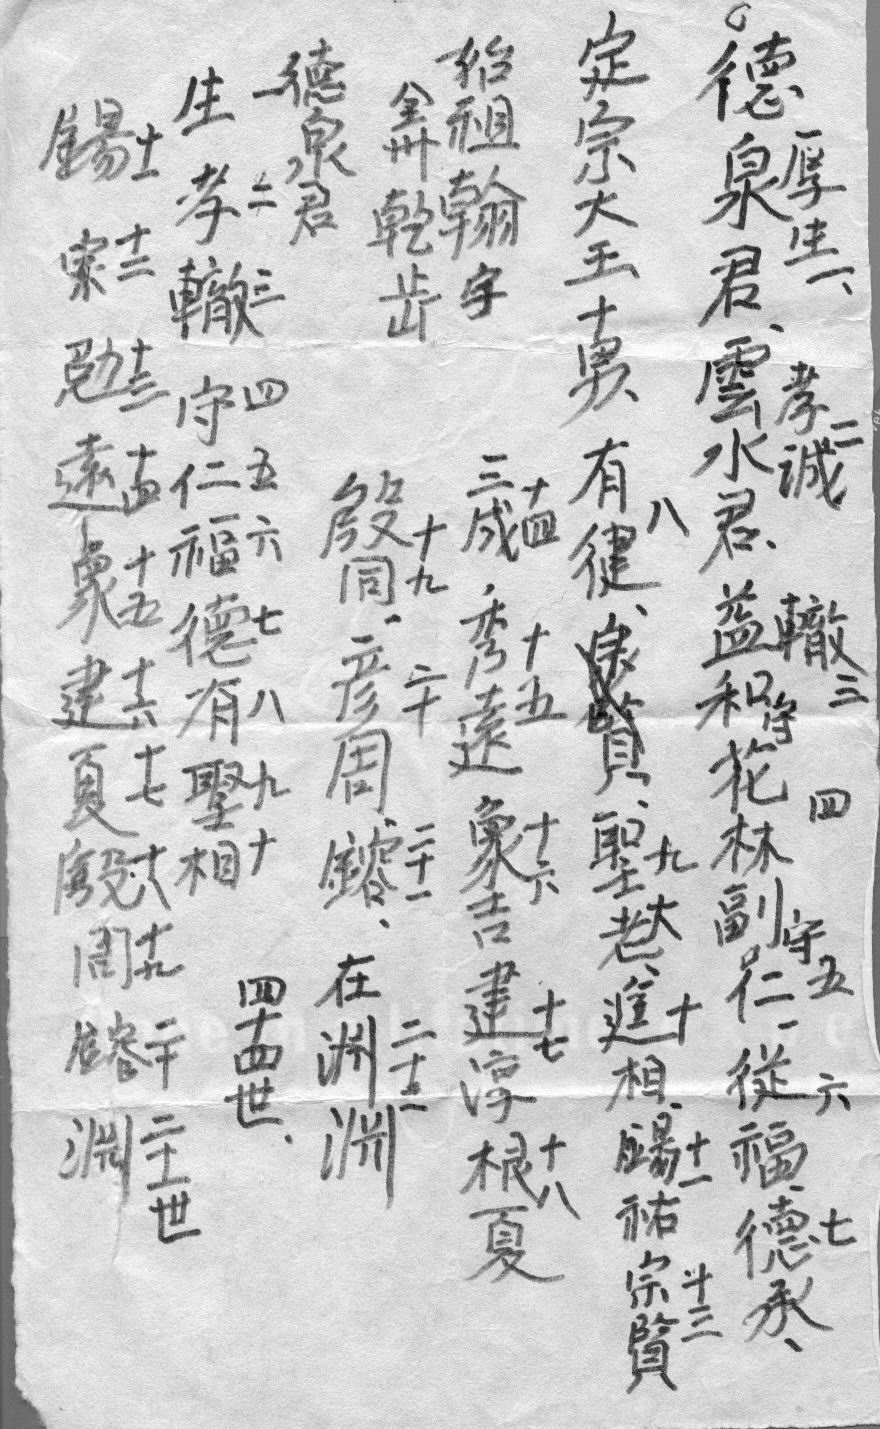 德泉君、雲水君、益和花林副仁、從福、德承、
厚生一、孝誠二 轍三 守四 守五 六 七
定宗大王十男、有健、賢、聖老、進相、錫祐宗賢
八 九 大 十 十一 十三
始祖翰字 三成、秀遠象吉建淳根夏
十四 十五 十六 十七 十八
乾步
殷同、彦周、鎔、在淵淵
十九 二十 二十一 二十二
德泉君
一 二 三 四 五 六 七 八 九 十 四十四世、
生孝轍守仁福德有聖相
十一 十二 十三 十四 十五 十六 十七 十八 十九 二十 二十一世
錫宗勉遠象建夏殷周鎔淵